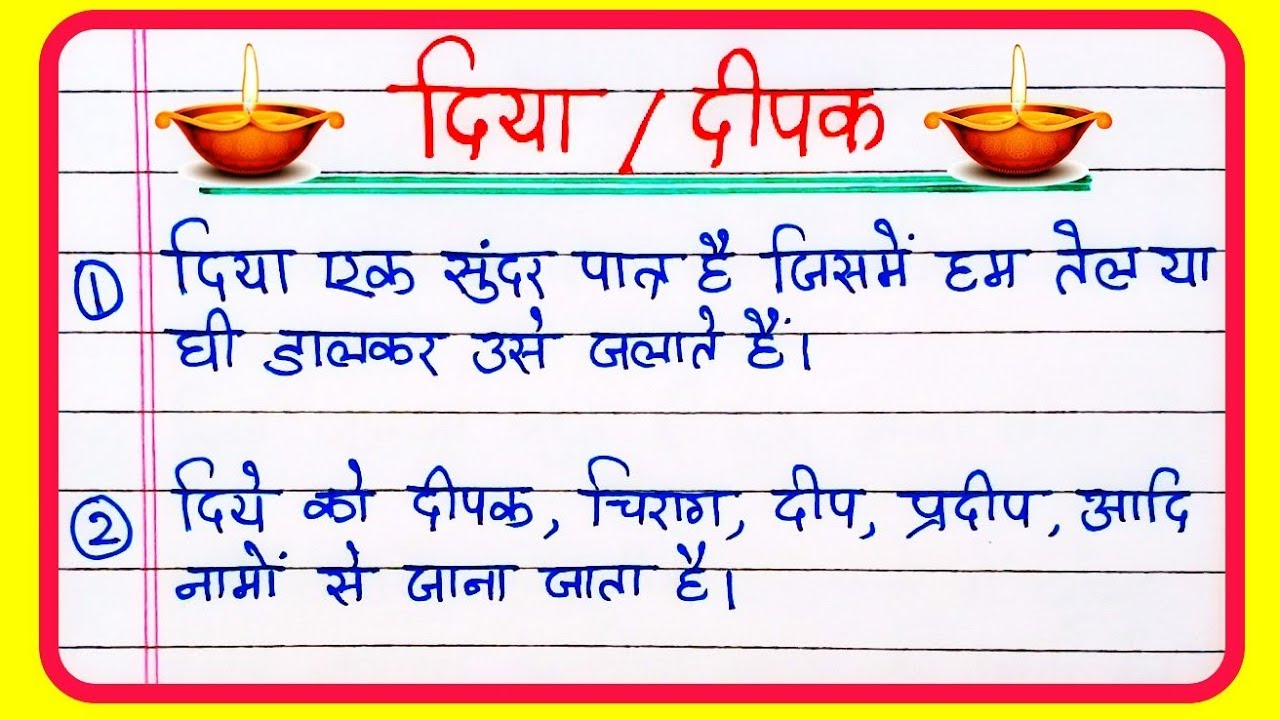 दिया / दीपक
① दिया एक सुंदर पात्र है जिसमें हम तेल या
घी डालकर उसे जलाते हैं।
② दिये को दीपक, चिराग, दीप, प्रदीप, आदि
नामों से जाना जाता है।